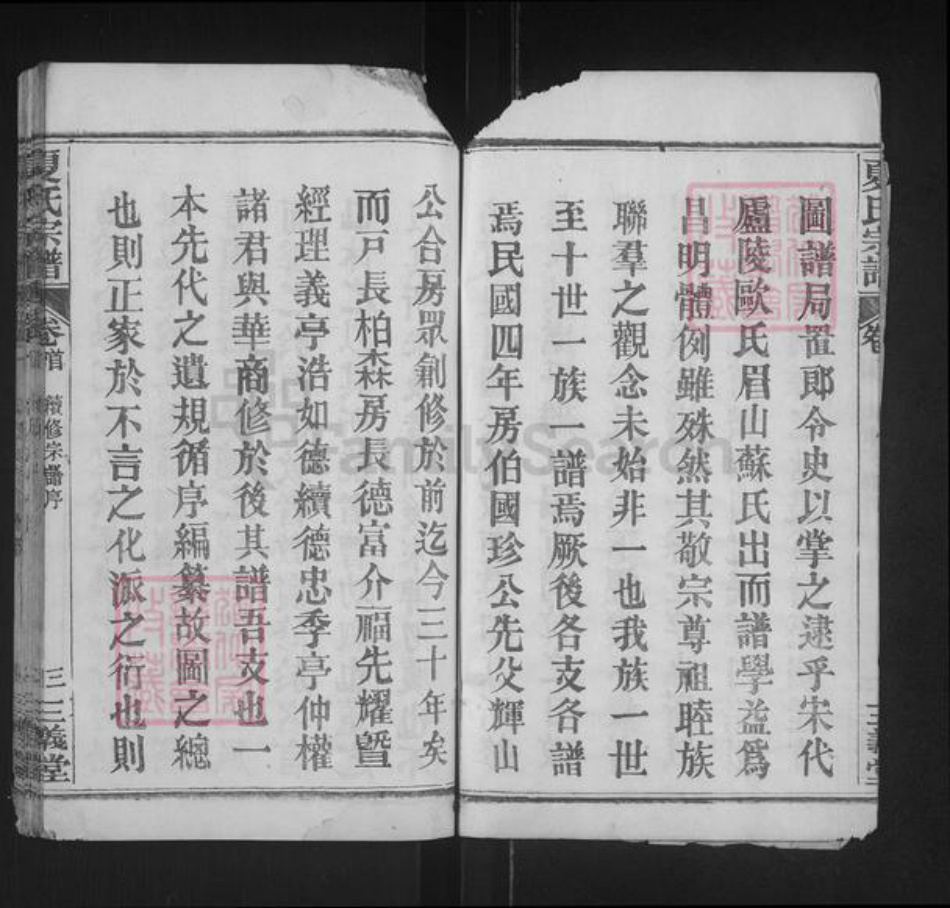 夏氏宗譜
圖譜局置郎令史以掌之逮乎宋代
廬陵歐氏眉山蘇氏出而譜學益爲
昌明體例雖殊然其敬宗尊祖睦族
聯羣之觀念未始非一也我族一世
至十世一族一譜焉厥後各支各譜
焉民國四年房伯國珍公先父輝山
公合房眾創修於前迄今三十年矣
而戸長柏森房長德富介福先耀曁
經理義亭浩如德續德忠季亭仲權
諸君與華商修於後其譜吾支也一
本先代之遺規循序編纂故圖之總
也則正家於不言之化派之衍也則
夏氏宗譜 卷首 續修宗譜序 三 三義堂
FamilySearch